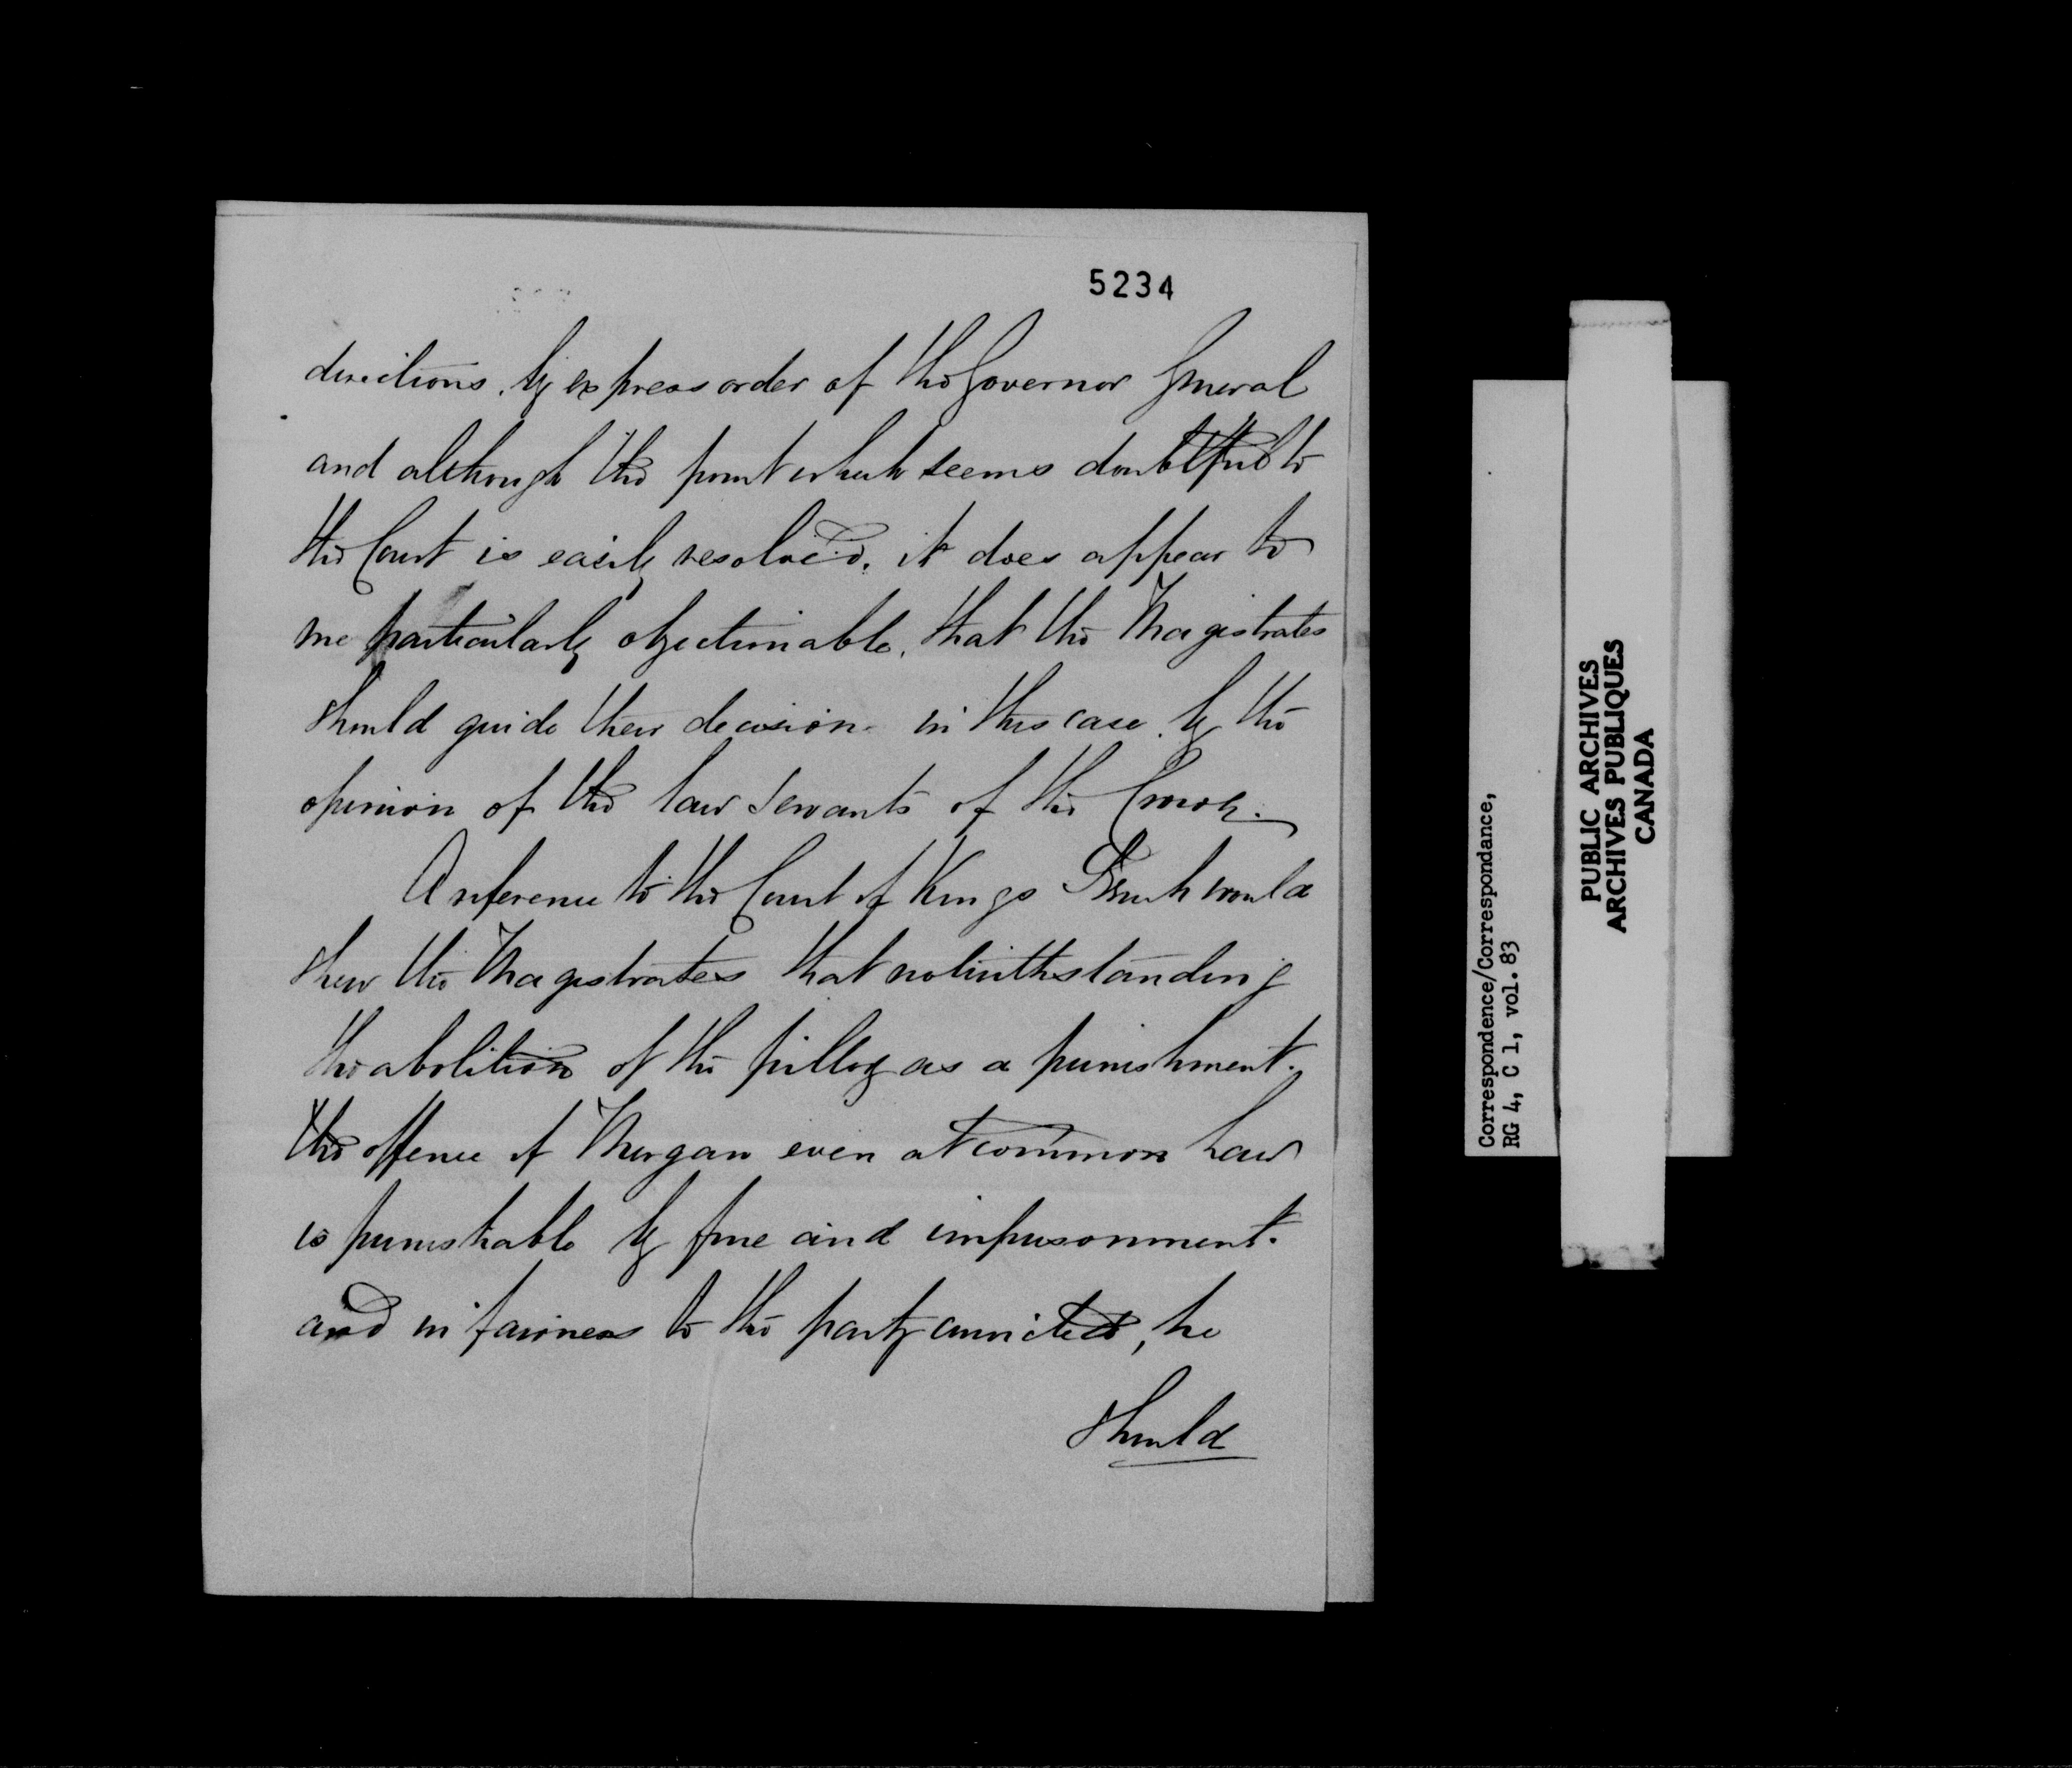 5234
directions, by express order of the Governor General
and although the point which seems doubtful to
the Court is easily resolved, it does appear to
me particularly objectionable, that the Magistrates
should guide their decision in this case by the
opinion of the law servants of the Crown.
A reference to the Court of Kings Bench would
shew the Magistrates that notwithstanding
the abolition of the pillory as a punishment.
the offence of Morgan even at common Law
is punishable by fine and imprisonment.
and in fairness to the party convicted, he
should
Correspondence/Correspondance,
RG 4, C 1, vol. 83
PUBLIC ARCHIVES
ARCHIVES PUBLIQUES
CANADA